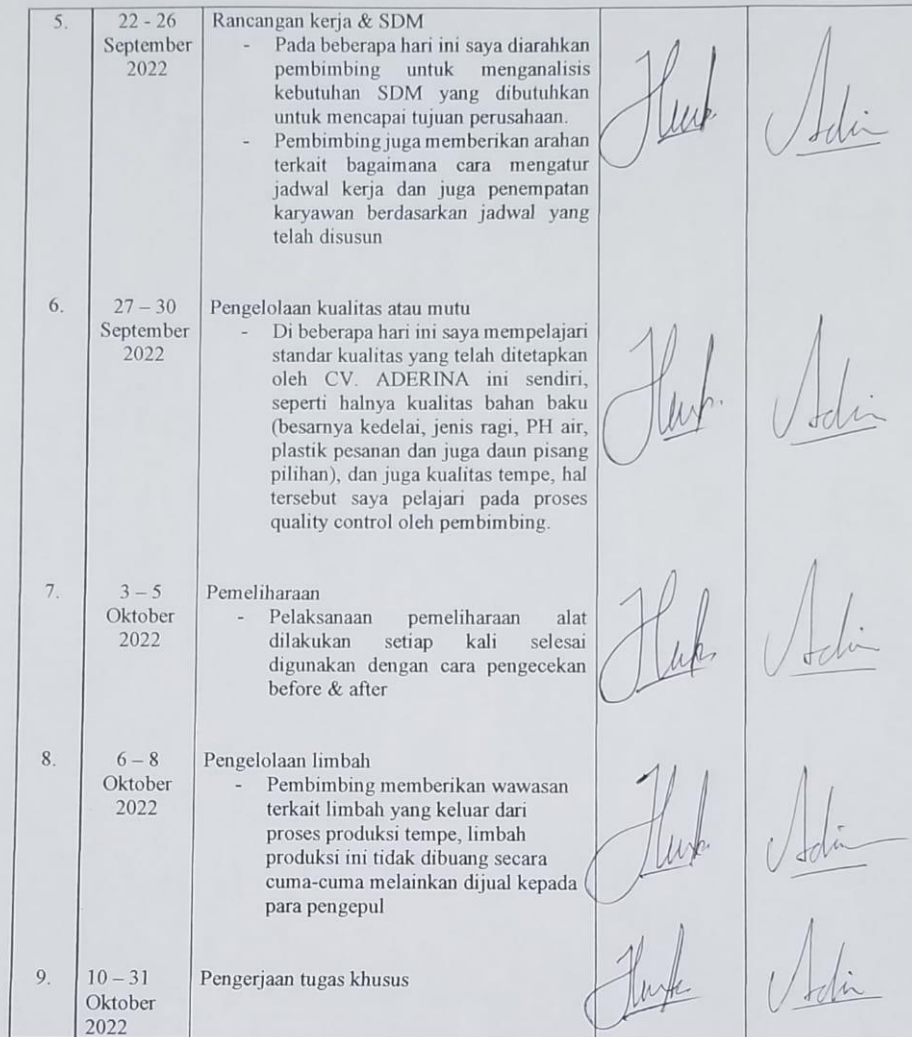 5.
22 - 26
September
2022
Rancangan kerja & SDM
- Pada beberapa hari ini saya diarahkan
pembimbing untuk menganalisis
kebutuhan SDM yang dibutuhkan
untuk mencapai tujuan perusahaan.
- Pembimbing juga memberikan arahan
terkait bagaimana cara mengatur
jadwal kerja dan juga penempatan
karyawan berdasarkan jadwal yang
telah disusun
6.
27 – 30
September
2022
Pengelolaan kualitas atau mutu
- Di beberapa hari ini saya mempelajari
standar kualitas yang telah ditetapkan
oleh CV. ADERINA ini sendiri,
seperti halnya kualitas bahan baku
(besarnya kedelai, jenis ragi, PH air,
plastik pesanan dan juga daun pisang
pilihan), dan juga kualitas tempe, hal
tersebut saya pelajari pada proses
quality control oleh pembimbing.
7.
3 – 5
Oktober
2022
Pemeliharaan
- Pelaksanaan pemeliharaan alat
dilakukan setiap kali selesai
digunakan dengan cara pengecekan
before & after
8.
6 – 8
Oktober
2022
Pengelolaan limbah
- Pembimbing memberikan wawasan
terkait limbah yang keluar dari
proses produksi tempe, limbah
produksi ini tidak dibuang secara
cuma-cuma melainkan dijual kepada
para pengepul
9.
10 – 31
Oktober
2022
Pengerjaan tugas khusus